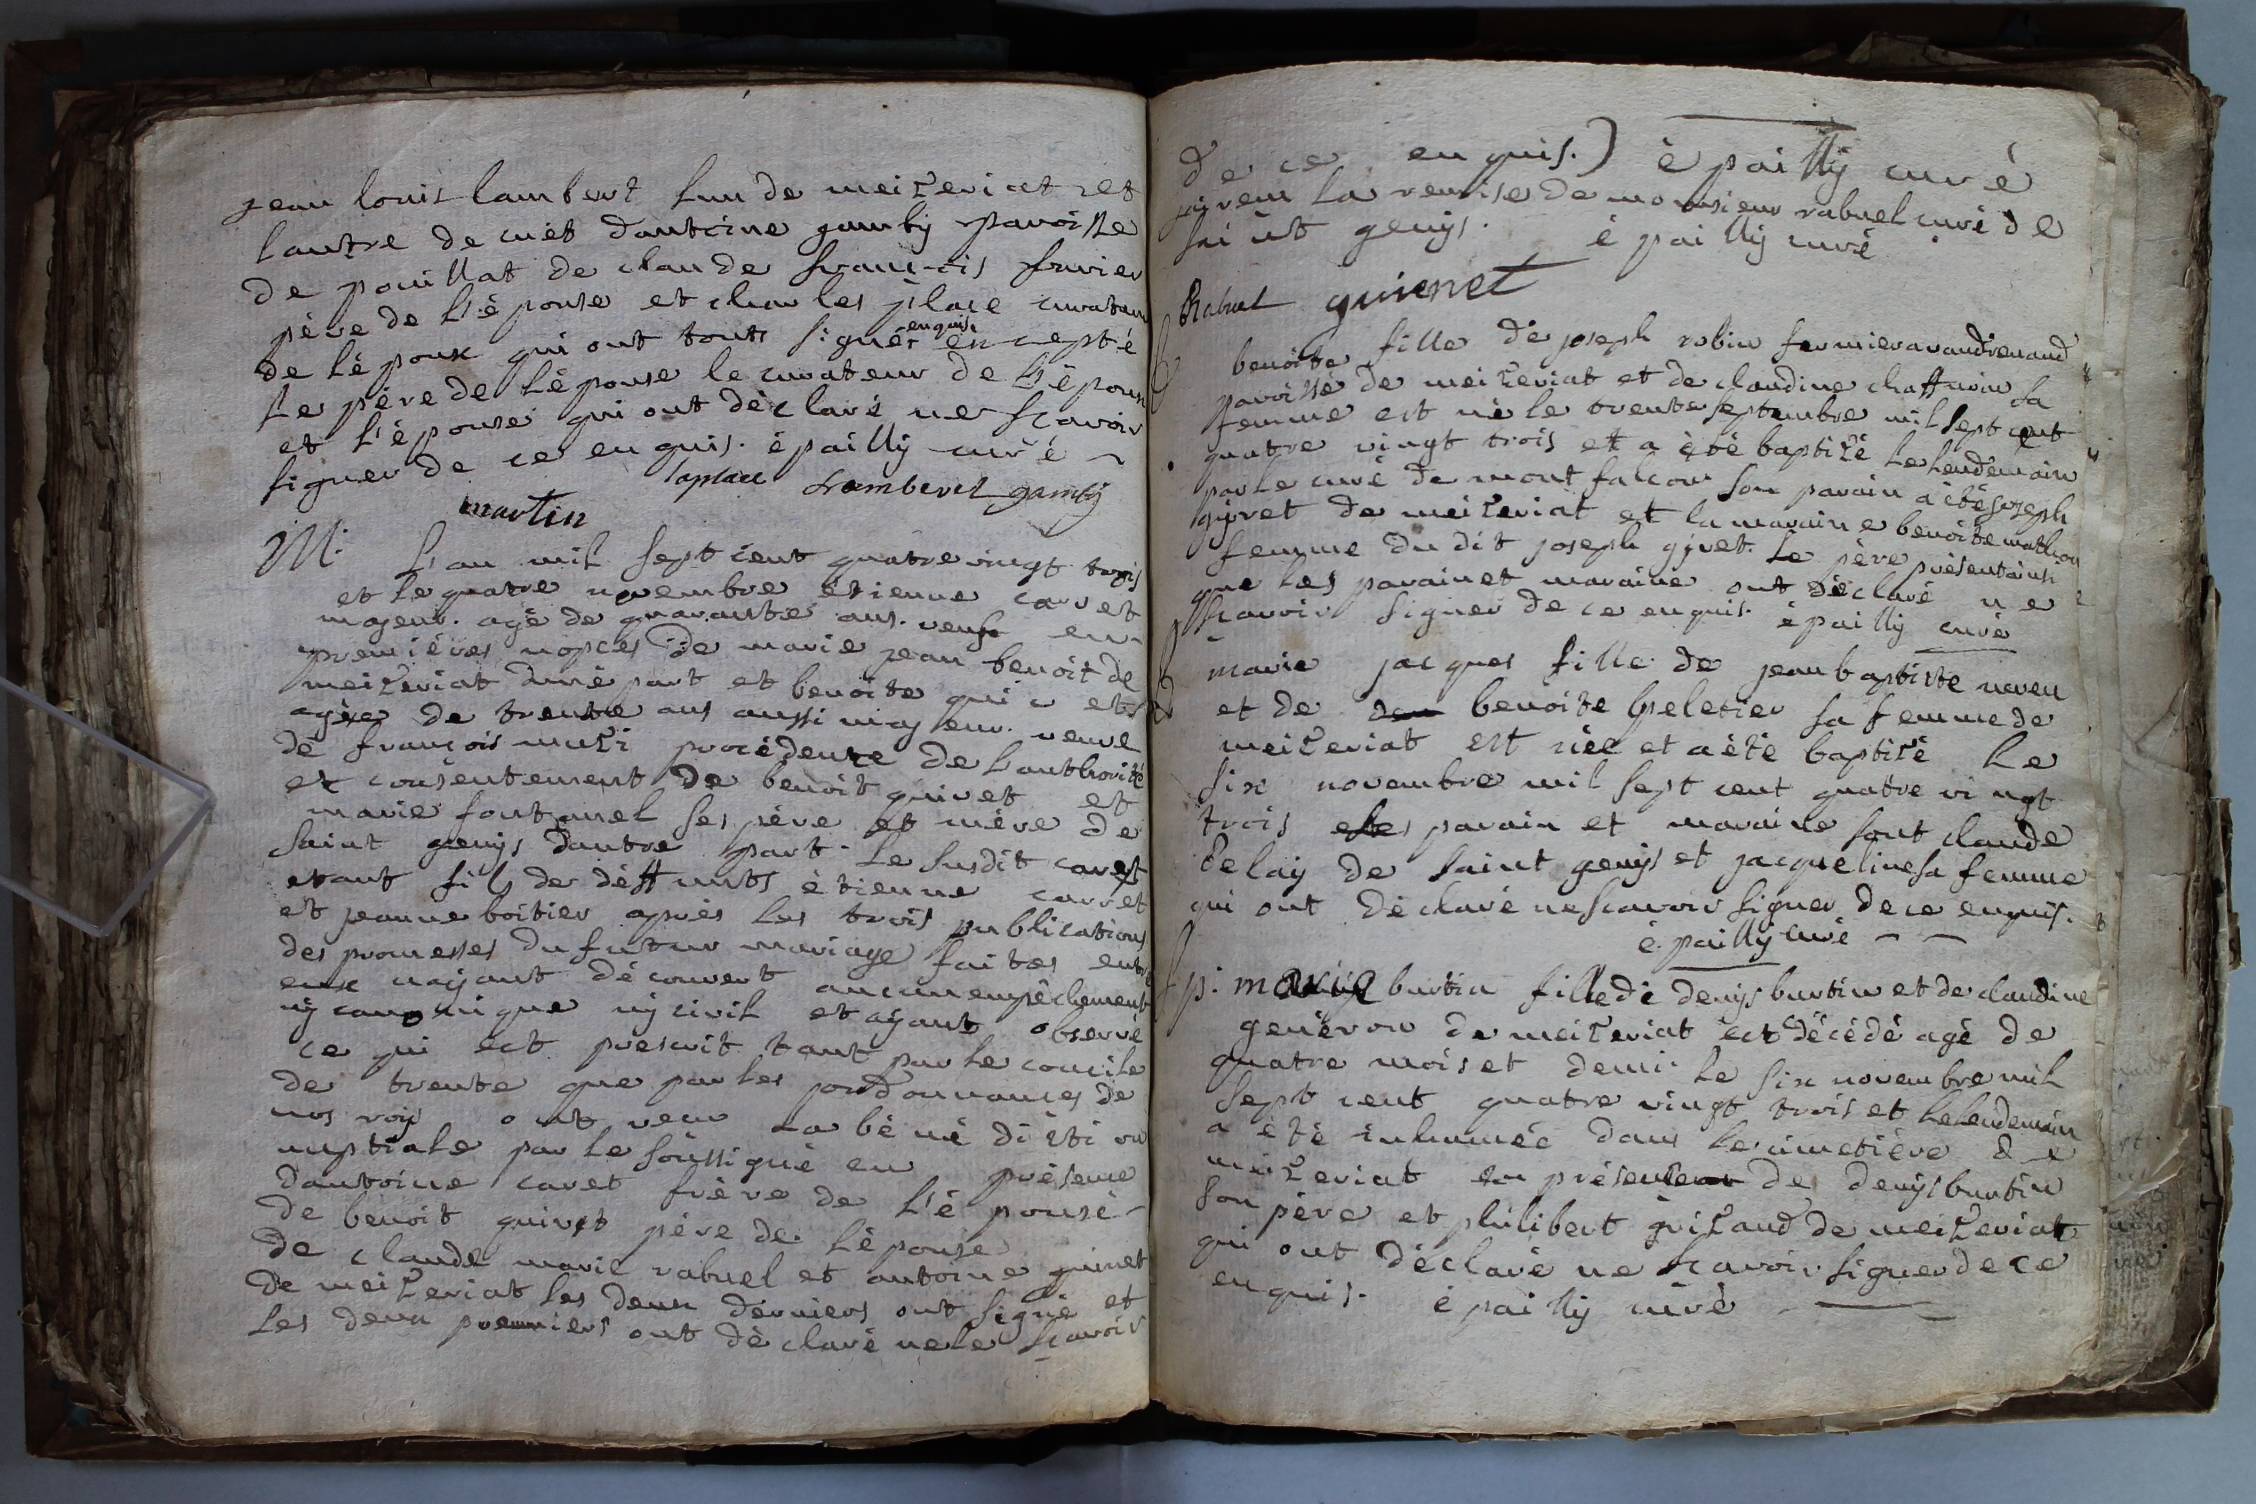 jean louis lambert lun de meizeriat et
lautre de cuét dantoine gamby paroisse
de pouillat de claude francois fanier
père de l'épouse et charles place curateur
de lépoux qui ont touts signés enquis excepté
le père de lépouse le curateur de l'épouse
et l'épouse qui ont déclaré ne scavoir
signer de ce enquis. épailly curé
laplace Lambert gamby
martin
M. L'an mil sept cent quatre vingt trois
et le quatre novembre étienne carret
majeur. agé de quarante ans. veuf en
premières nopces de marie jean benoit de
meizeriat d'une part et benoite
agèe de trente ans aussi majeur. veuve
de françois muzi procédente de lauthorité
et consentement de benoit quivet et
marie fontanel ses père et mère de
saint genys dautre part. le susdit caret
etant fils de déffunts étienne carret
et jeanne boitier après les trois publications
des promesses du futur mariage faites entre
eux nayant découvert aucun empêchement
ny canonique ny civil et ayant observé
ce qui est prescrit tant par le concile
de trente que par les ordonnances de
nos roys ont recu la bénédiction
nuptiale par le soussigné en présence
dantoine caret frère de l'épousé
de benoit quivet père de l'épouse
de claude marie rabuel et antoine guinet
de meizeriat les deux dérniers ont signé et
les deux premiers ont déclaré ne le scavoir
de ce enquis.) épailly curé
jai recu la remise de monsieur rabuel curé de
saint genys. épailly curé
Rabuel guienet
B benoite fille de joseph robin fermier a vandrenand
paroisse de meizeriat et de claudine chaffurin sa
femme est née le trente septembre mil sept cent
quatre vingt trois et a été baptizé le lendemain
par le curé de montfalcon son parain a été joseph
gyret de meizeriat et la maraine benoite mathion
femme du dit joseph gyret. le père présent ainsi
que les parain et maraine ont déclaré ne
scavoir signer de ce enquis. épailly curé
B marie jacques fille de jean baptiste neveu
et de benoite peletier sa femme de
meizeriat est née et a été baptizé le
six novembre mil sept cent quatre vingt
trois ses parain et maraine sont claude
Belay de saint genys et jacqueline sa femme
qui ont déclaré ne scavoir signer de ce enquis.
épailly curé
Sp: marie burtin fille de denys burtin et de claudine
genévon de meizeriat est décédé agé de
quatre mois et demi le six novembre mil
sept cent quatre vingt trois et le lendemain
a été inhumée dans le cimetière de
meizeriat en présence de denys burtin
son père et philibert grizaud de meizeriat
qui ont déclaré ne scavoir signer de ce
enquis. épailly curé